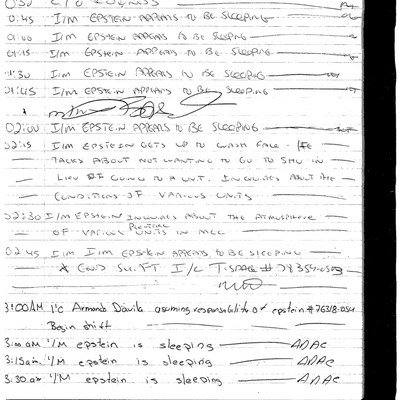 00:45 I/M EPSTEIN APPEARS TO BE SLEEPING
01:00 I/M EPSTEIN APPEARS TO BE SLEEPING
01:15 I/M EPSTEIN APPEARS TO BE SLEEPING
01:30 I/M EPSTEIN APPEARS TO BE SLEEPING
01:45 I/M EPSTEIN APPEARS TO BE SLEEPING
02:00 I/M EPSTEIN APPEARS TO BE SLEEPING
02:15 I/M EPSTEIN GETS UP TO WASH FACE. HE
TALKS ABOUT NOT WANTING TO GO TO SHU IN
LIEU OF GOING TO A UNIT. INQUIRES ABOUT THE
CONDITIONS OF VARIOUS UNITS
02:30 I/M EPSTEIN INQUIRES ABOUT THE ATMOSPHERE
OF VARIOUS UNITS IN MCC
02:45 I/M EPSTEIN APPEARS TO BE SLEEPING
* END SHIFT I/C
3:00AM I/C Armando assuming responsability of epstein #76318-054
Begin shift
3:00 am I/M epstein is sleeping
3:15am I/M epstein is sleeping
3:30 am I/M epstein is sleeping